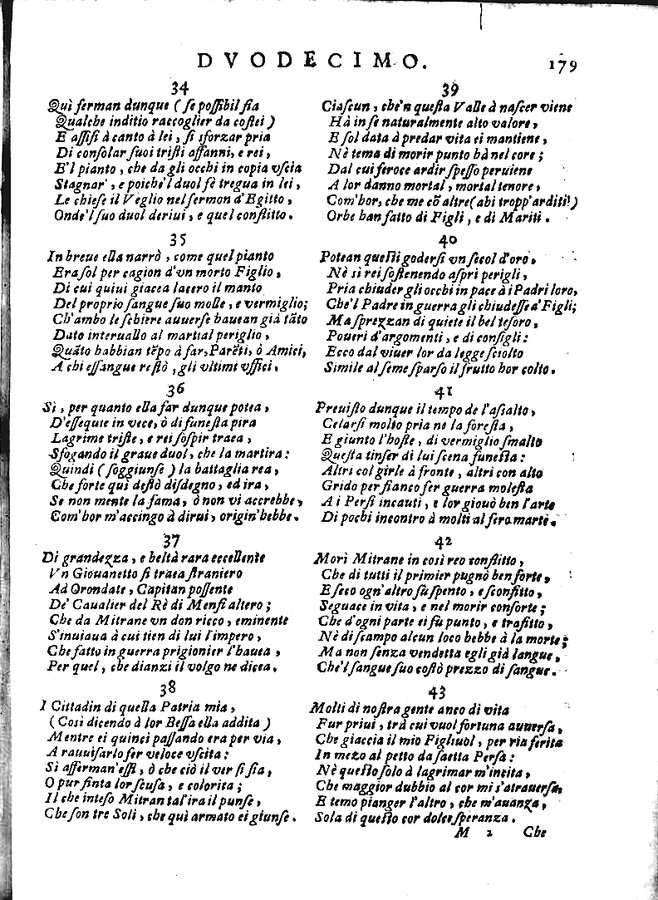 DVODECIMO.
179
34
Quì ferman dunque (ſe poſſibil ſia
Qualche inditio raccoglier da coſtei)
E aſſiſi à canto à lei, ſi sforzar pria
Di conſolar ſuoi triſti affanni, e rei,
E'l pianto, che da gli occhi in copia vſcia
Stagnar', e poiche'l duol fè tregua in lei,
Le chieſe il Veglio nel ſermon d'Egitto,
Onde'l ſuo duol deriui, e quel conflitto.
35
In breue ella narrò, come quel pianto
Era ſol per cagion d'vn morto Figlio,
Di cui quiui giacea lacero il manto
Del proprio ſangue ſuo molle, e vermiglio;
Ch'ambo le ſchiere auuerſe hauean già tãto
Dato interuallo al martial periglio,
Quãto habbian tẽpo à far, Parẽti, ò Amici,
A chi eſſangue reſtò, gli vltimi vffici.
36
Sì, per quanto ella far dunque potea,
D'eſſequie in vece, ò di funeſta pira
Lagrime triſte, e rei ſoſpir traea,
Sfogando il graue duol, che la martira:
Quindi (ſoggiunſe) la battaglia rea,
Che forte quì deſtò diſdegno, ed ira,
Se non mente la fama, ò non vi accrebbe,
Com'hor m'accingo à dirui, origin'hebbe.
37
Di grandezza, e beltà rara eccellente
Vn Giouanetto ſi traea ſtraniero
Ad Orondate, Capitan poſſente
De' Caualier del Rè di Menfi altero;
Che da Mitrane vn don ricco, eminente
S'inuiaua à cui tien di lui l'impero,
Che fatto in guerra prigionier l'hauea,
Per quel, che dianzi il volgo ne dicea.
38
I Cittadin di quella Patria mia,
(Così dicendo à lor Beſſa ella addita)
Mentre ei quinci paſſando era per via,
A rauuiſarlo fer veloce vſcita:
Sì afferman'eſſi, ò che ciò il ver ſi ſia,
O pur finta lor ſcuſa, e colorita;
Il che inteſo Mitran tal'ira il punſe,
Che ſon tre Soli, che quì armato ei giunſe.
39
Ciaſcun, che'n queſta Valle à naſcer viene
Hà in ſe naturalmente alto valore,
E ſol data à predar vita ei mantiene,
Nè tema di morir punto hà nel core;
Dal cui feroce ardir ſpeſſo peruiene
A lor danno mortal, mortal tenore,
Com'hor, che me cõ altre (ahi tropp'arditi!)
Orbe han fatto di Figli, e di Mariti.
40
Potean queſti goderſi vn ſecol d'oro,
Nè sì rei ſoſtenendo aſpri perigli,
Pria chiuder gli occhi in pace à i Padri loro,
Che'l Padre in guerra gli chiudeſſe a' Figli;
Ma sprezzan di quiete il bel teſoro,
Poueri d'argomenti, e di conſigli:
Ecco dal viuer lor da legge ſciolto
Simile al ſeme ſparſo il frutto hor colto.
41
Preuiſto dunque il tempo de l'aſſalto,
Celarſi molto pria ne la foreſta,
E giunto l'hoſte, di vermiglio ſmalto
Queſta tinſer di lui ſcena funeſta:
Altri col girle à fronte, altri con alto
Grido per fianco fer guerra moleſta
A i Perſi incauti, e lor giouò ben l'arte
Di pochi incontro à molti al fero marte.
42
Morì Mitrane in così reo conflitto,
Che di tutti il primier pugnò ben forte,
E ſeco ogn'altro fù ſpento, e ſconfitto,
Seguace in vita, e nel morir conſorte;
Che d'ogni parte ei fù punto, e trafitto,
Nè di ſcampo alcun loco hebbe à la morte;
Ma non ſenza vendetta egli già langue,
Che'l ſangue ſuo coſtò prezzo di ſangue.
43
Molti di noſtra gente anco di vita
Fur priui, trà cui vuol fortuna auuerſa,
Che giaccia il mio Figliuol, per ria ferita
In mezo al petto da ſaetta Perſa:
Nè queſto ſolo à lagrimar m'incita,
Che maggior dubbio al cor mi s'atrauerſa,
E temo pianger l'altro, che m'auanza,
Sola di queſto cor dolce ſperanza.
M 2 Che